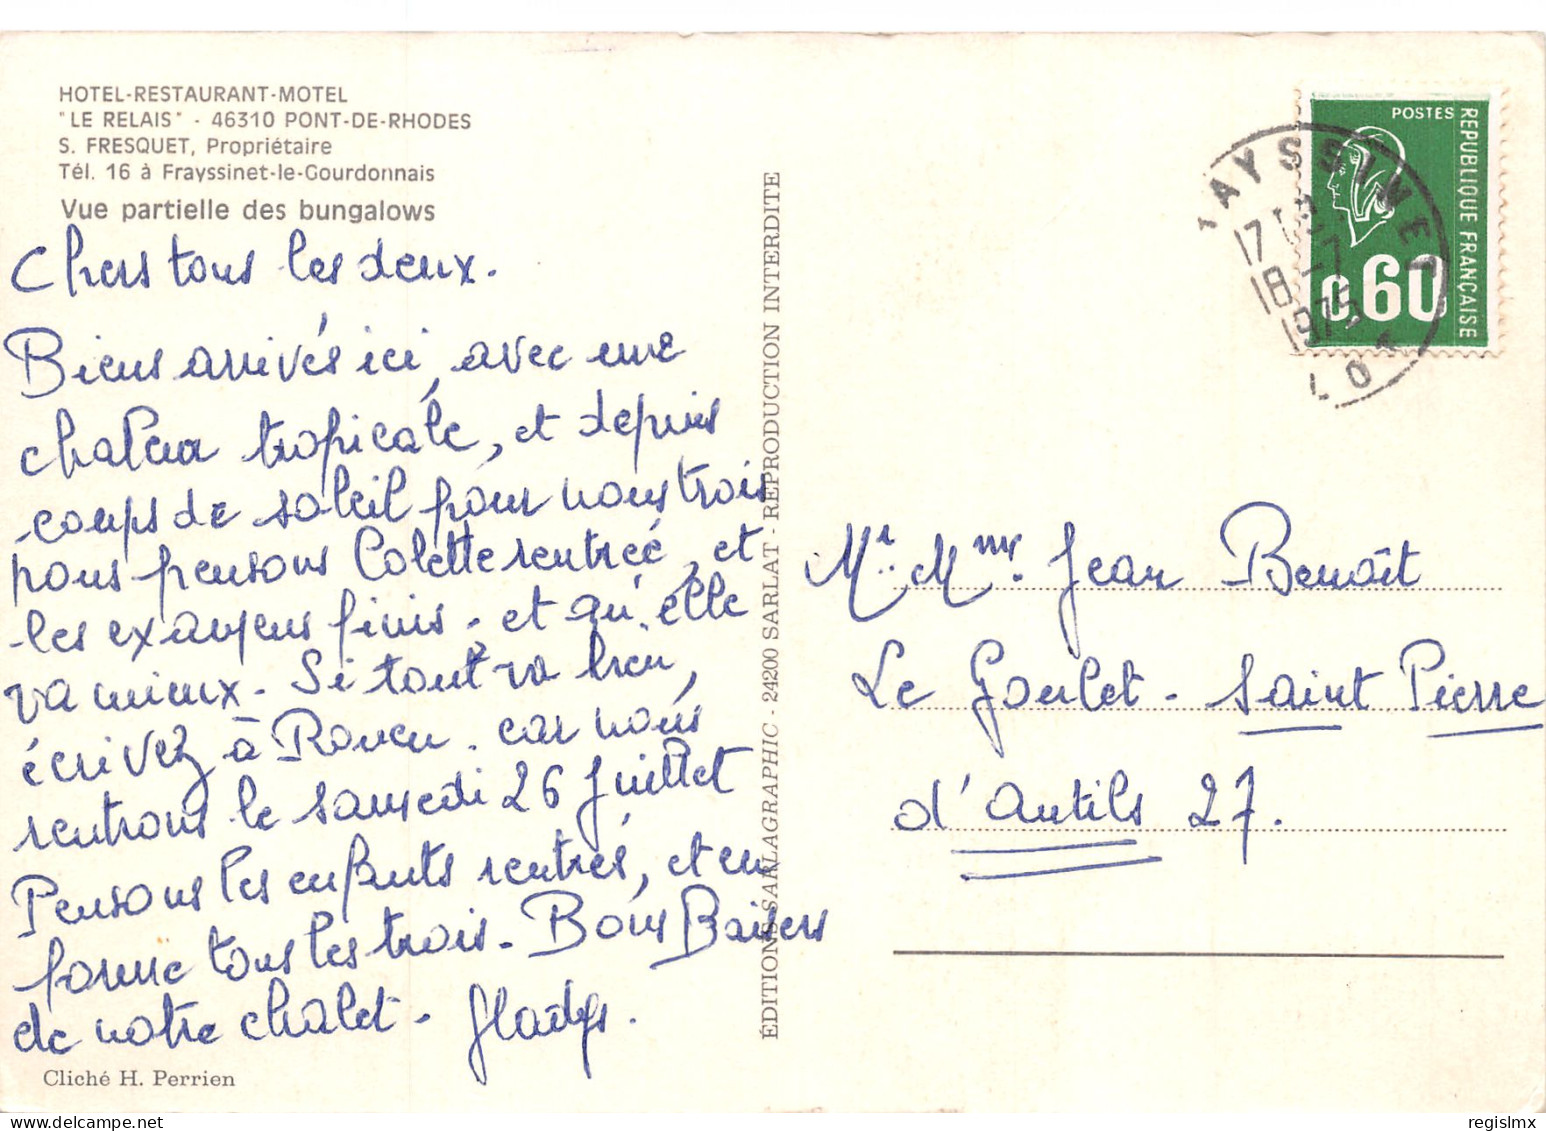 HOTEL-RESTAURANT-MOTEL
"LE RELAIS" - 46310 PONT-DE-RHODES
S. FRESQUET, Propriétaire
Tél. 16 à Frayssinet-le-Gourdonnais
Vue partielle des bungalows
Chers tous les deux.
Biens arrivés ici, avec une
chaleur tropicale, et depuis
coups de soleil pour nous trois
nous pensons Colette rentrée, et
les examens finis, et qu'elle
va mieux. Si tout va bien,
écrivez à Rouen. car nous
rentrons le samedi 26 Juillet
Pensons les enfants rentrés, et en
forme tous les trois. Bons Baisers
de notre chalet. Gladys.
Cliché H. Perrien
ÉDITIONS SARLAGRAPHIC - 24200 SARLAT - REPRODUCTION INTERDITE
POSTES
REPUBLIQUE FRANÇAISE
0,60
AYSSINET
17
18-7
1975
LOT
Mr. Mme. Jean Benoît
Le Goulet - Saint Pierre
d'Autils 27.
regislmx